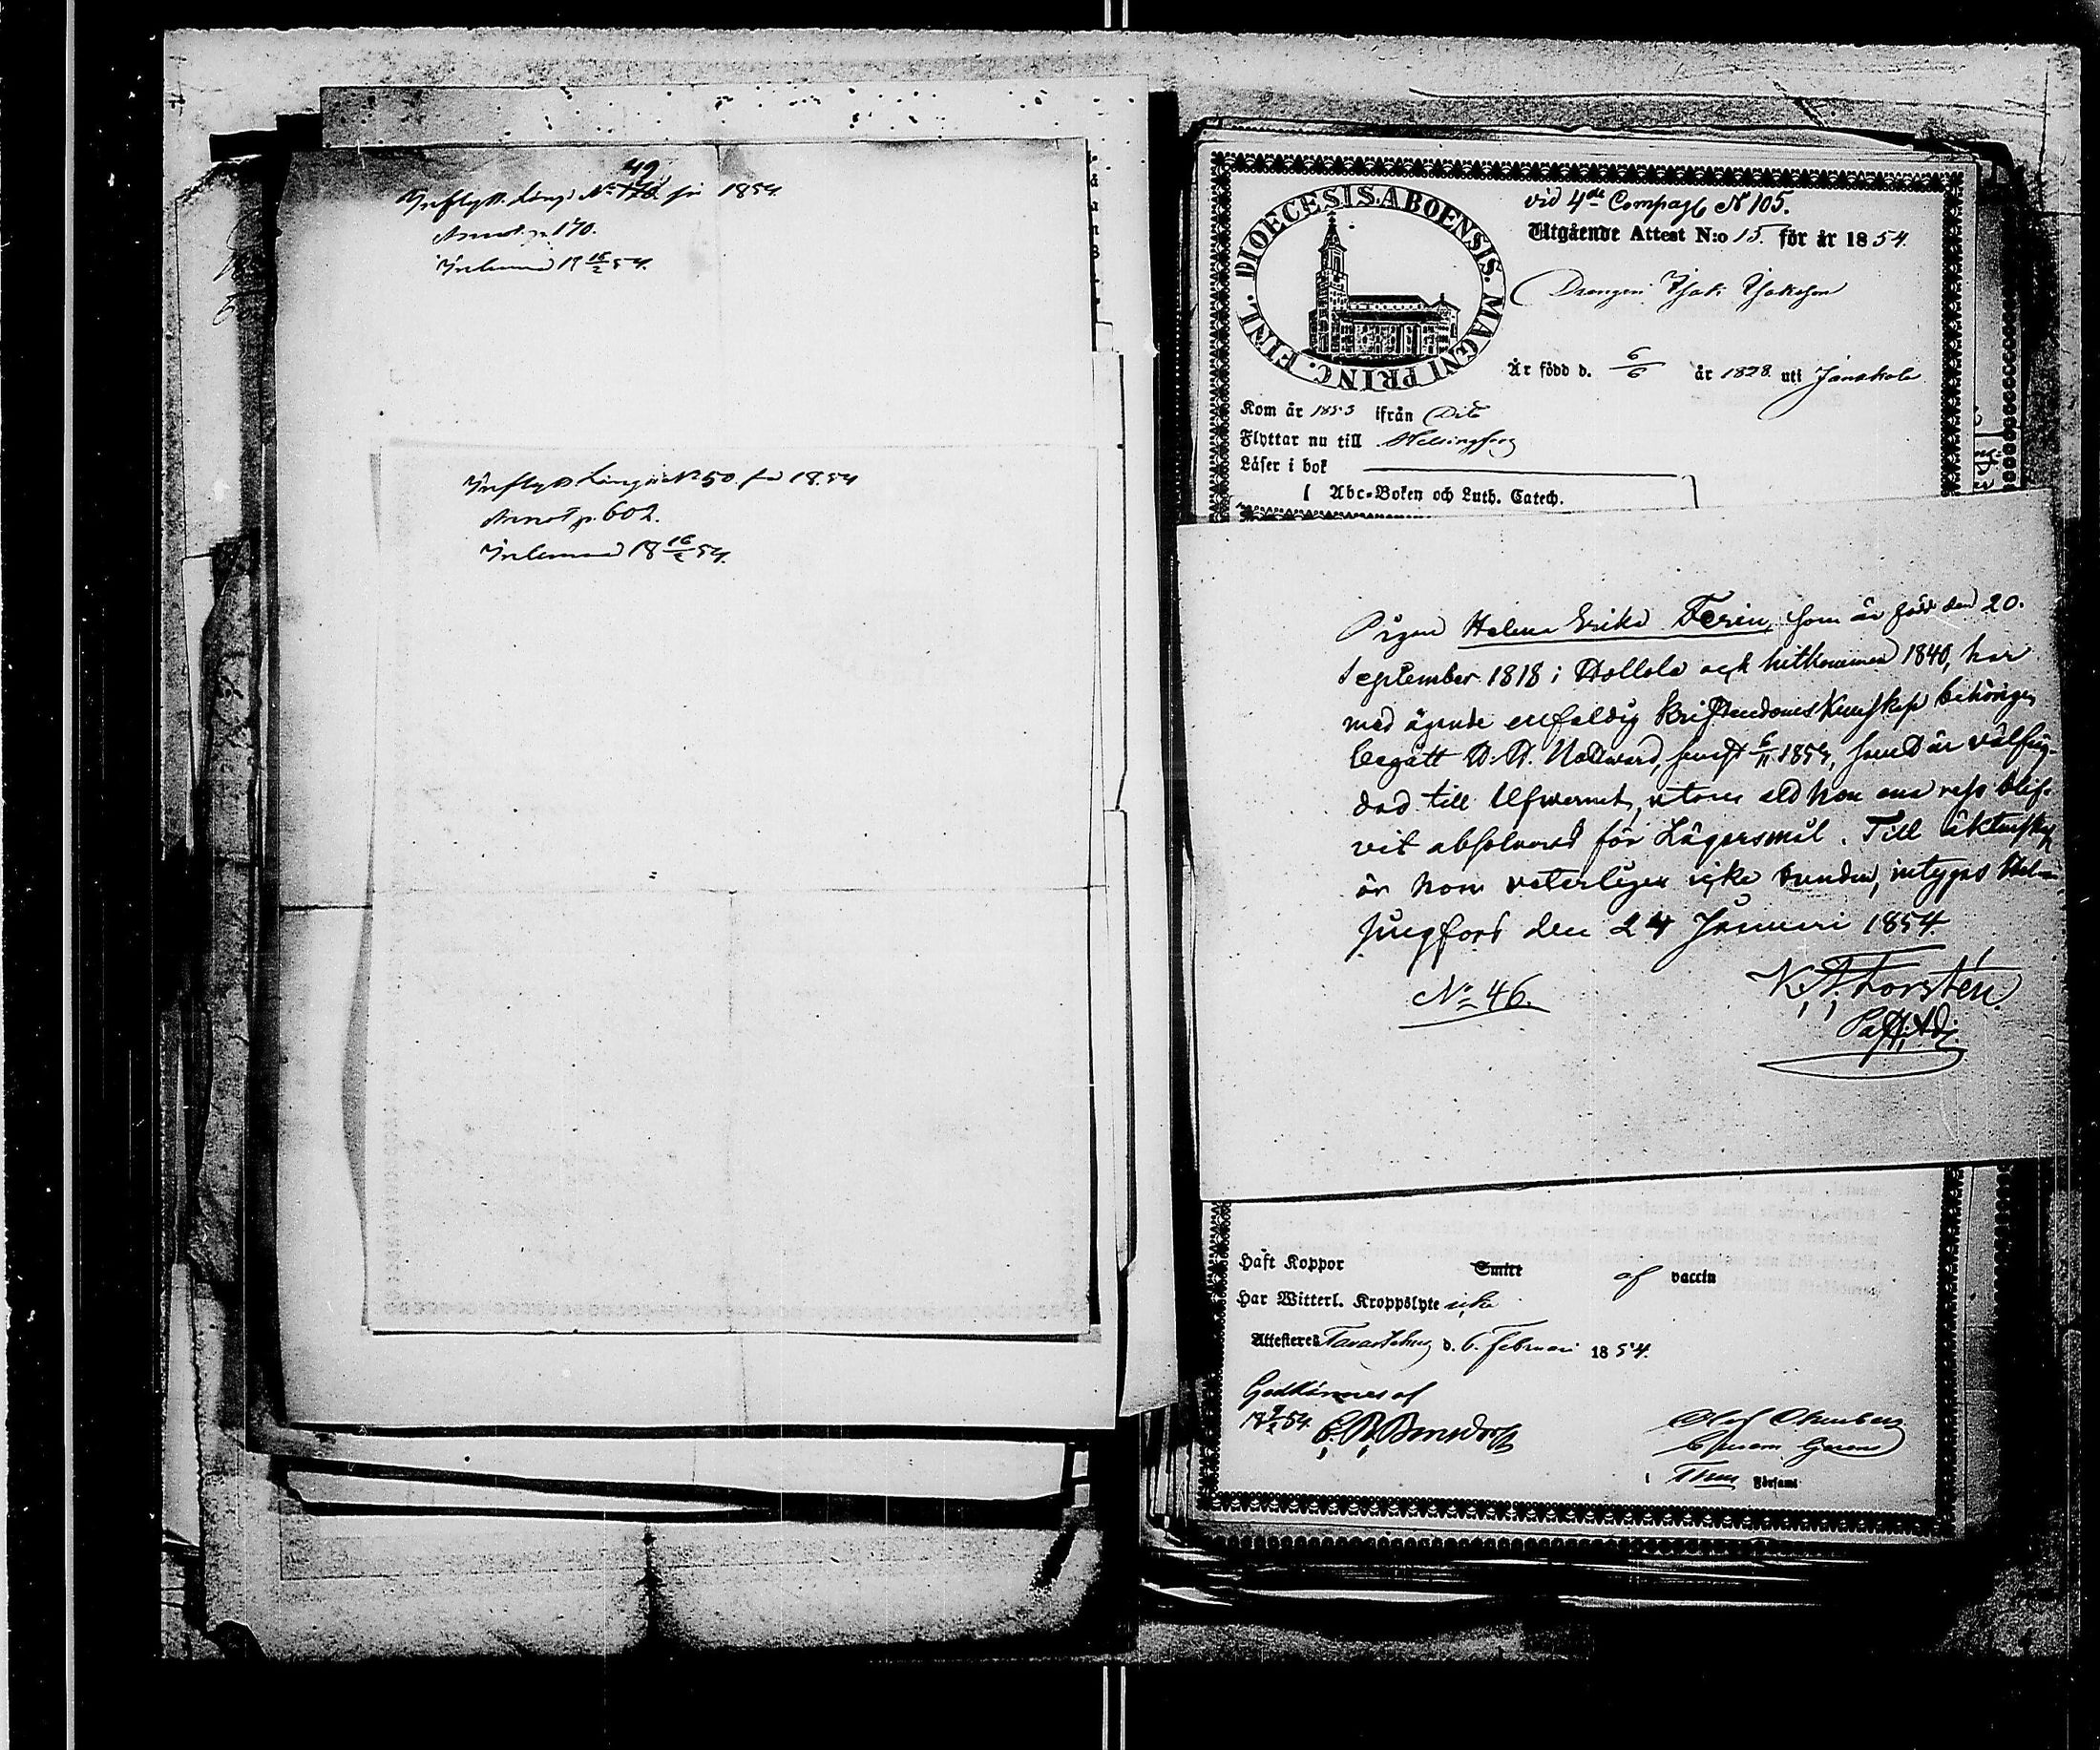 49
Inflytt. Läng: No 170. för 1854
Annot. p. 170.
Inlemnad 18 16/2 54.
Inflytt. Längd No 50. för 1854
Annot p. 602.
Inlemnad 18 16/2 54.
DIOECESIS ABOENSIS. MAGNI PRINC. FINL.
vid 4de Compag N 105.
Utgående Attest N:o 15. för år 1854.
Drengen Isak Isaksson
Är född d. 6/6 år 1828 uti Janakala
Kom år 1853 ifrån Dito
Flyttar nu till Helsingfors
Läser i bok
Abc-Boken och Luth. Catech.
Pigan Helena Erika Ferin, som är född den 20.
September 1818 i Hollola och hitkommen 1840, har
med ägande enfaldig kristendoms kunskap behörigen
begått H. H. Nattvard, senast 6/11 1853, samt är välfrej-
dad till lefvernet, utom att hon ena resa blif-
vit absolverad för Lägersmål. Till äktenskap
är hon veterligen icke bunden, intygas Hel-
singfors den 24 Januari 1854.
No 46.
K. F. Forstén
Past. Adj.
Haft Koppor Smitt af vaccin
Har Witterl. Kroppslyte icke
Attesteras Tavastehus d. 6. Februari 1854.
Godkännes af
18 9/2 54.
Församl